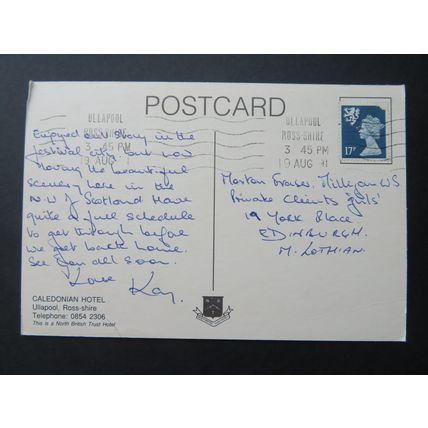 POSTCARD
ULLAPOOL
ROSS-SHIRE
3 45 PM
19 AUG
ULLAPOOL
ROSS-SHIRE
3 45 PM
19 AUG 91
17P
Enjoyed our stay in the
festival city but now
having the beautiful
scenery here in the
N.W of Scotland. Have
quite a full schedule
to get through before
we get back home.
See you all soon.
Love Kay.
Morton Fraser, Milligan WS
Private Clients 'girls'
19 York Place
EDINBURGH.
M. LOTHIAN.
CALEDONIAN HOTEL
Ullapool, Ross-shire
Telephone: 0854 2306
This is a North British Trust Hotel